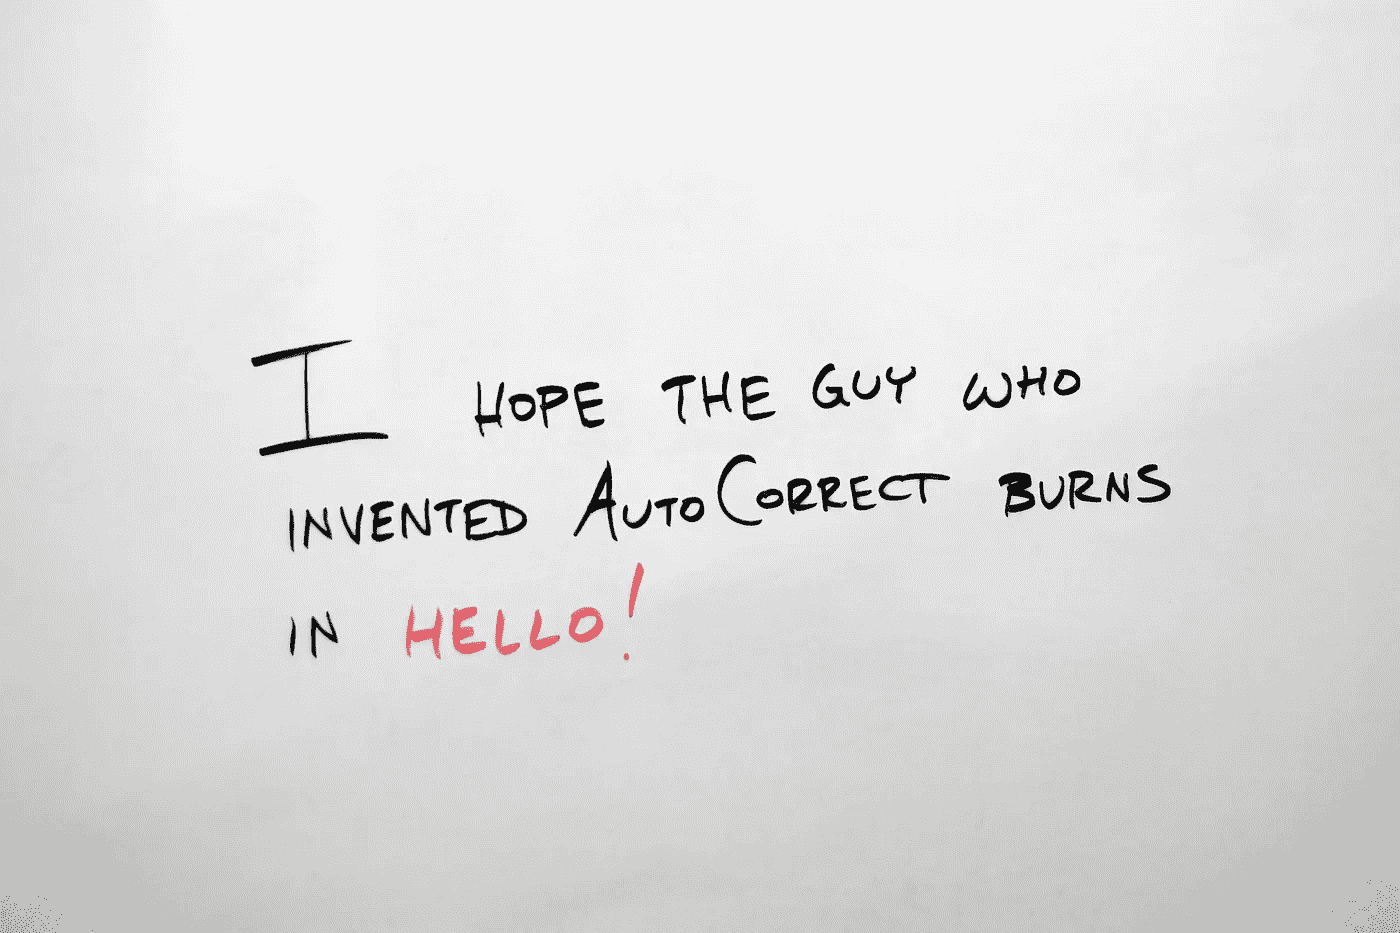 I HOPE THE GUY WHO
INVENTED AUTOCORRECT BURNS
IN HELLO!